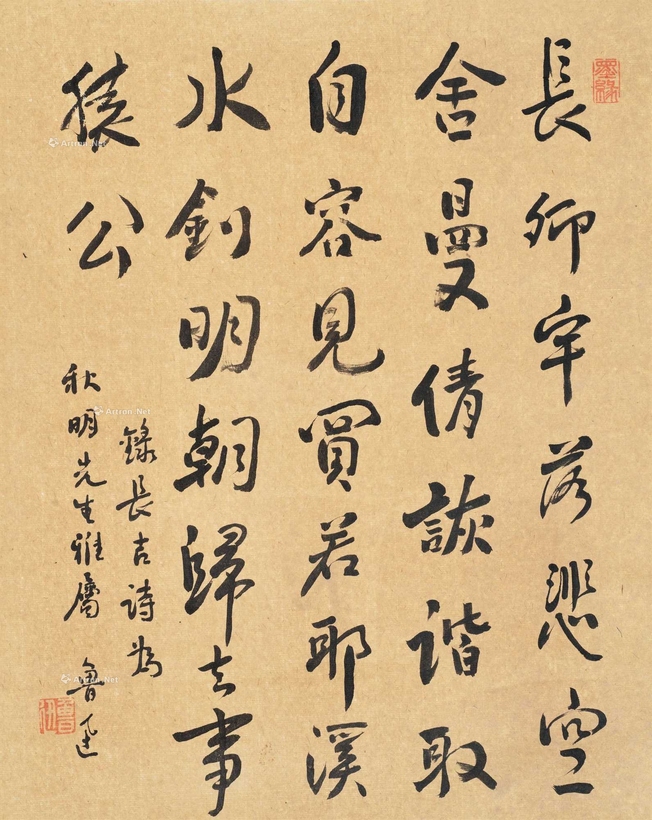 長卿牢落悲空
舍曼倩詼諧取
自容見買若耶溪
水劍明朝歸去事
猿公
錄長吉詩為
秋明先生雅屬 魯迅
魯迅
Artron.Net
Artron.Net
Artron.Net